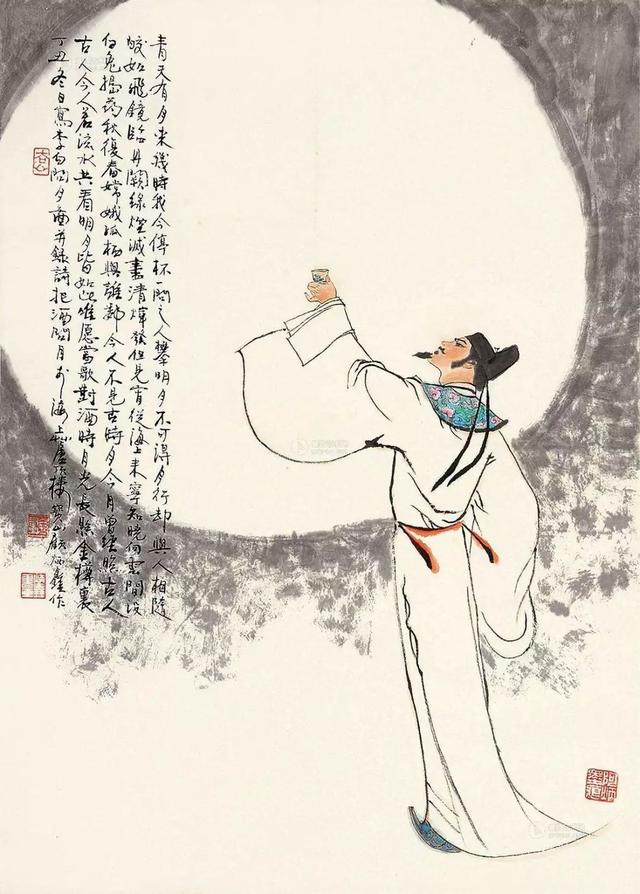 青天有月來幾時我今停杯一問之人攀明月不可得月行却與人相隨
皎如飛鏡臨丹闕綠煙滅盡清輝發但見宵從海上來寧知曉向雲間沒
白兔搗药秋復春嫦娥孤栖與誰鄰今人不見古時月今月曾經照古人
古人今人若流水共看明月皆如此唯愿當歌對酒時月光長照金樽裏
丁丑冬日寫李白問月啚并錄詩把酒問月於海上樓寶山顧炳鑫作